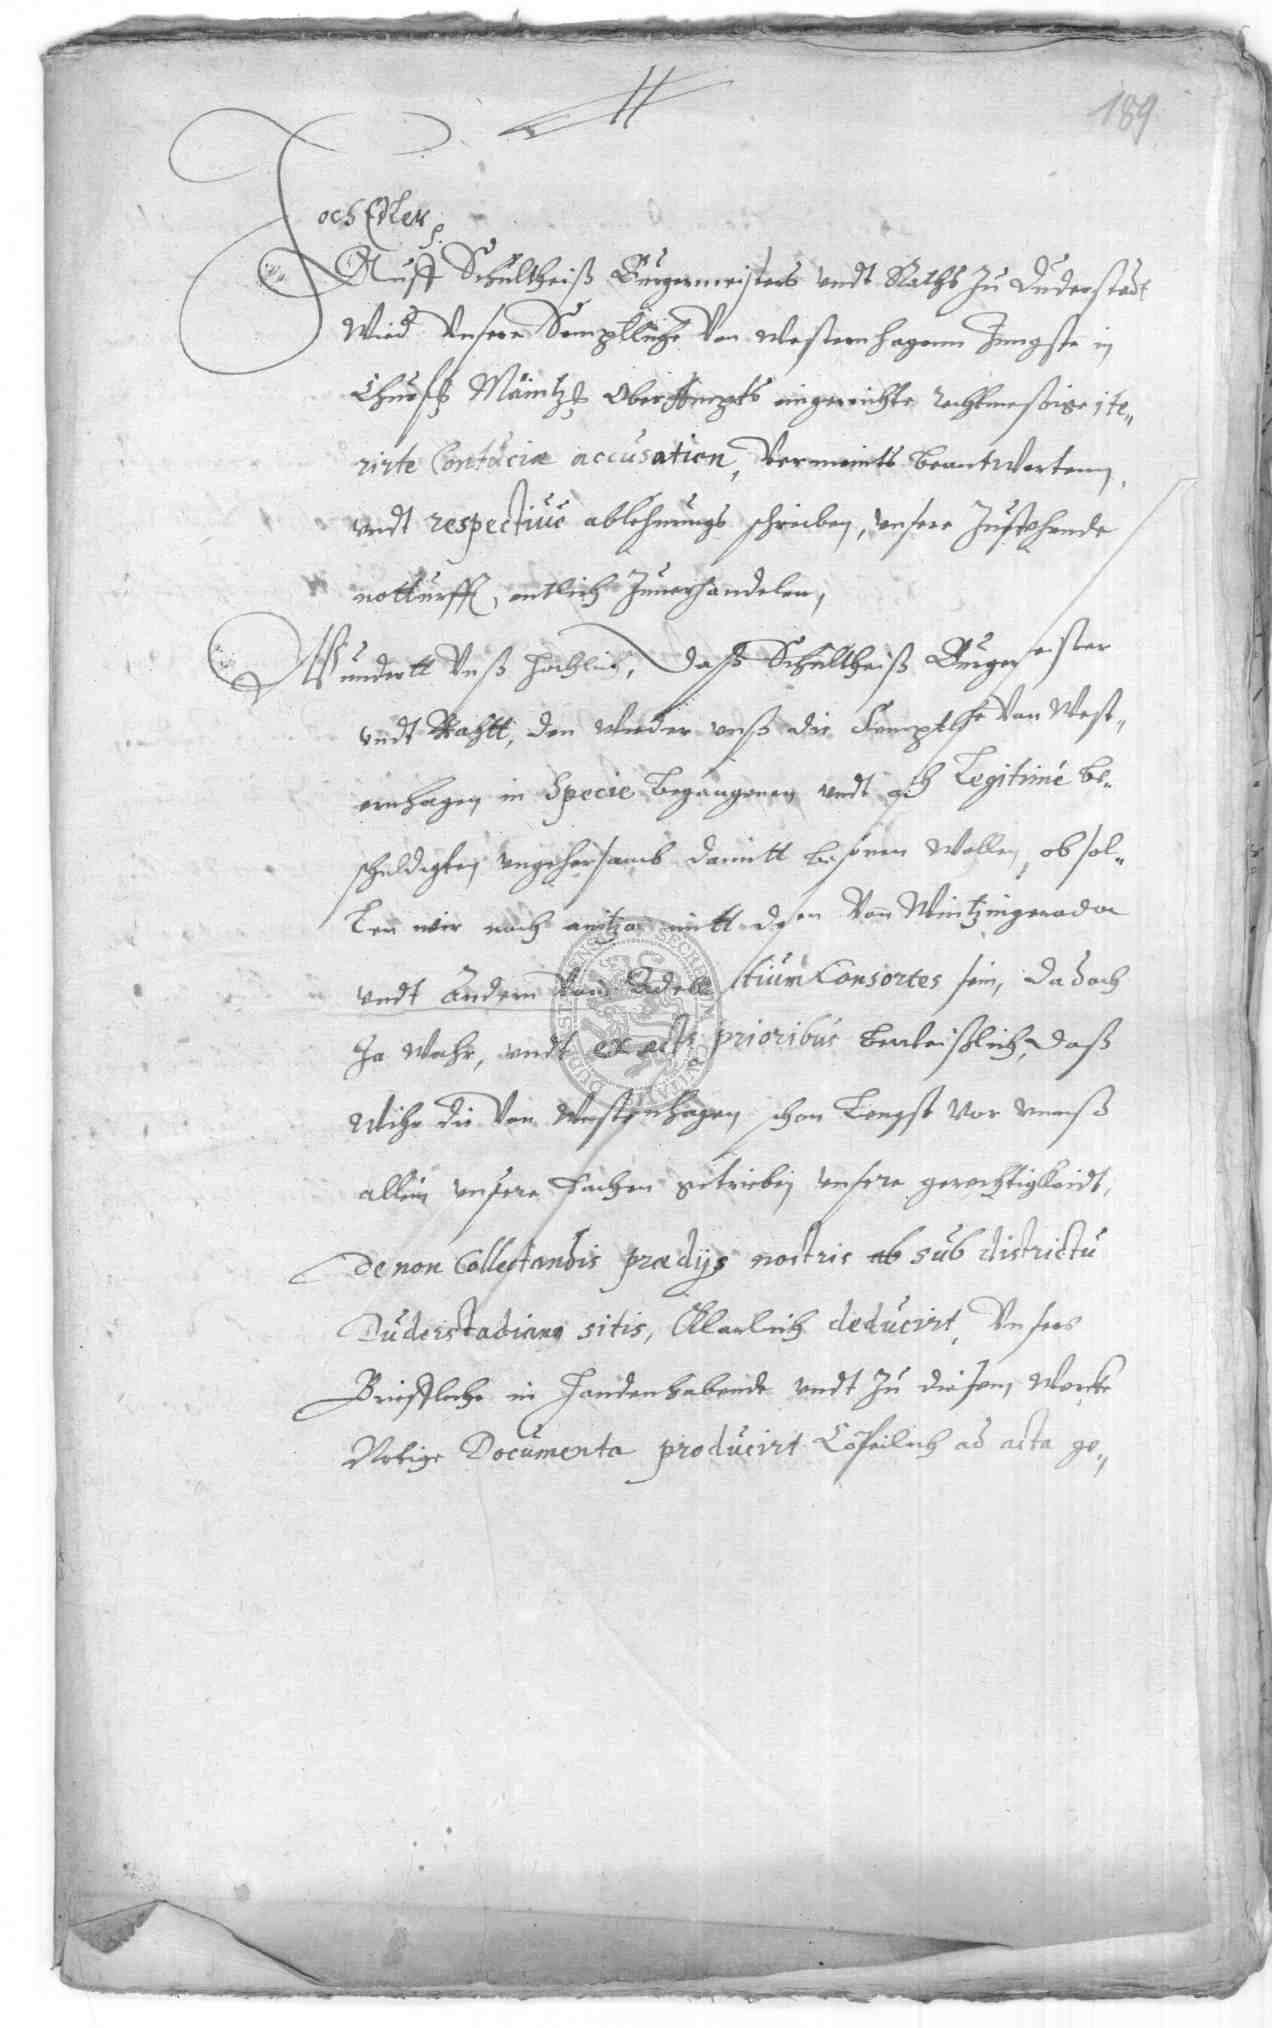 189
Hoch Edler
Auff Schultheiß Burgermeisters undt Raths Zu Duderstadt
Wied Unsere Semptliche Von Westernhagenn Jungste in
Churf: Mäintz: Ober Ampts eingereichte rechtmessige ite„
rirte Contuciæ accusation, Vermeints beantwortenn,
undt respective ablehnungs schreiben, unsere Zustehende
notturfft, entlich Zuverhandelen,
Wundertt Unß höchlich, daß Schultheiß Burgermeister
undt Rahtt, den wieder unß die Semptliche Von West„
ernhagen in Specie begangenen undt Legitimé be„
schuldigten ungehorsamb damitt wollen, ob sol„
len wir noch anitzo mitt denen Von Wintzingeroda
undt andern Von Adell litium Consortes sein, da doch
Ja wahr, undt ex actis prioribus beweißlich, daß
Wihr die Von Westernhagen schon Lengst vor unnß
allein unsere sachen getrieben unsere gerechtigkeidt,
De non Collectandis prædijs nostris ab sub districtu
Duderstadiano sitis, Klarlich deducirt, Unsers
Brieffliche in Handen habende undt Zu diesem Wercke
Notige Documenta producirt ad acta ge„
DUDERSTADT